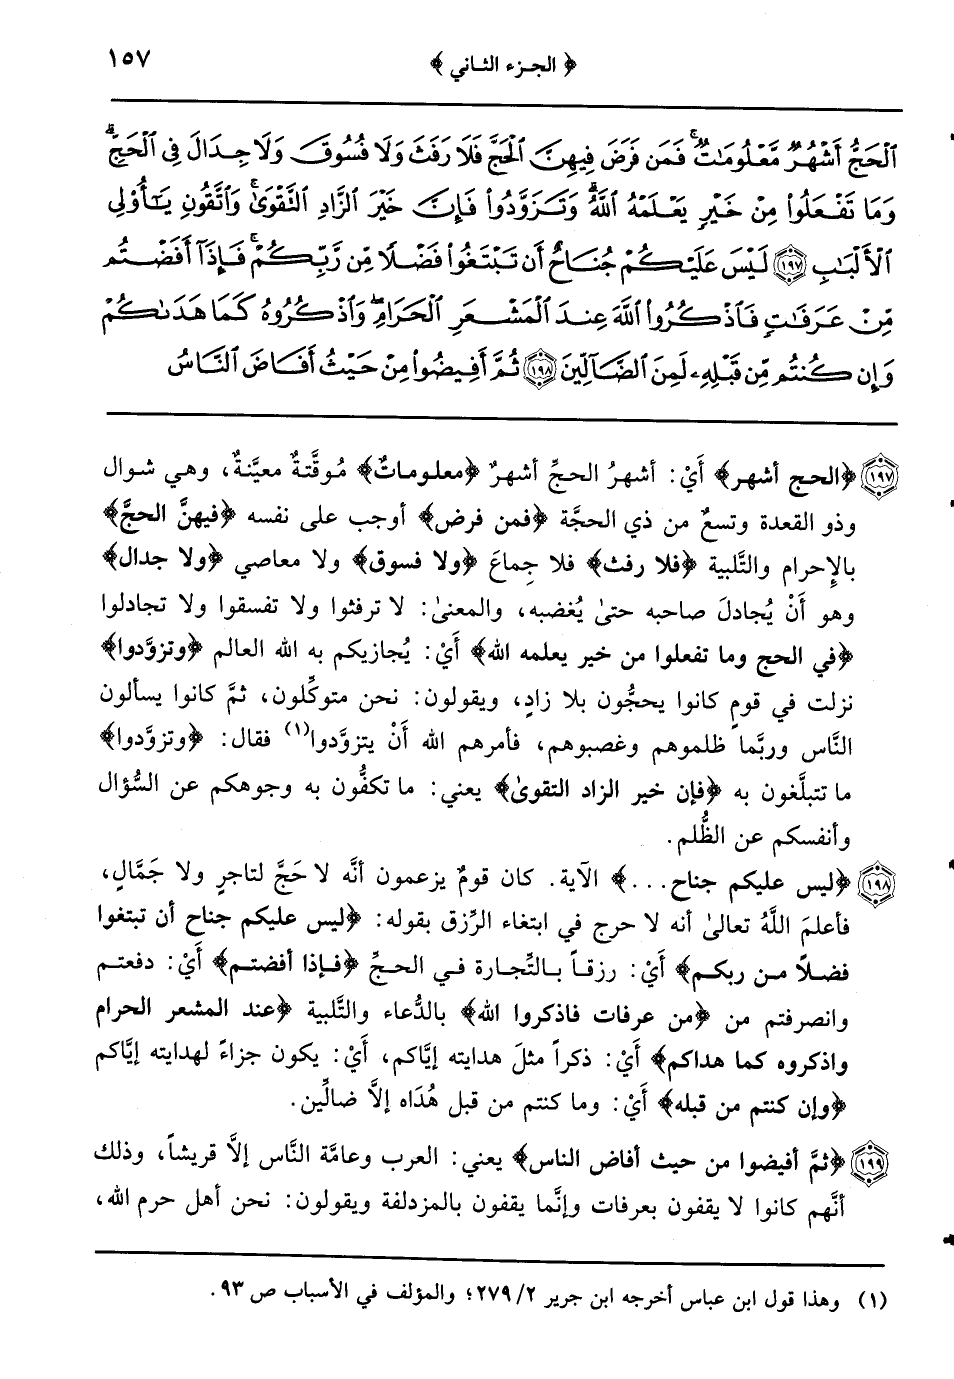 ﴿ الجزء الثاني ﴾ ١٥٧
ٱلۡحَجُّ أَشۡهُرٞ مَّعۡلُومَٰتٞۚ فَمَن فَرَضَ فِيهِنَّ ٱلۡحَجَّ فَلَا رَفَثَ وَلَا فُسُوقَ وَلَا جِدَالَ فِي ٱلۡحَجِّۗ
وَمَا تَفۡعَلُواْ مِنۡ خَيۡرٖ يَعۡلَمۡهُ ٱللَّهُۗ وَتَزَوَّدُواْ فَإِنَّ خَيۡرَ ٱلزَّادِ ٱلتَّقۡوَىٰۚ وَٱتَّقُونِ يَٰٓأُوْلِي
ٱلۡأَلۡبَٰبِ ١٩٧ لَيۡسَ عَلَيۡكُمۡ جُنَاحٌ أَن تَبۡتَغُواْ فَضۡلٗا مِّن رَّبِّكُمۡۚ فَإِذَآ أَفَضۡتُم
مِّنۡ عَرَفَٰتٖ فَٱذۡكُرُواْ ٱللَّهَ عِندَ ٱلۡمَشۡعَرِ ٱلۡحَرَامِۖ وَٱذۡكُرُوهُ كَمَا هَدَىٰكُمۡ
وَإِن كُنتُم مِّن قَبۡلِهِۦ لَمِنَ ٱلضَّآلِّينَ ١٩٨ ثُمَّ أَفِيضُواْ مِنۡ حَيۡثُ أَفَاضَ ٱلنَّاسُ
١٩٧ ﴿الحج أشهر﴾ أَيْ: أشهرُ الحجِّ أشهرٌ ﴿معلوماتٌ﴾ مُوقَّتةٌ معيَّنةٌ، وهي شوال
وذو القعدة وتسعٌ من ذي الحجَّة ﴿فمن فرض﴾ أوجب على نفسه ﴿فيهنَّ الحجَّ﴾
بالإِحرام والتَّلبية ﴿فلا رفث﴾ فلا جِماعَ ﴿ولا فسوق﴾ ولا معاصي ﴿ولا جدال﴾
وهو أَنْ يُجادلَ صاحبه حتىٰ يُغضبه، والمعنىٰ: لا ترفثوا ولا تفسقوا ولا تجادلوا
﴿في الحج وما تفعلوا من خير يعلمه الله﴾ أَيْ: يُجازيكم به الله العالم ﴿وتزوَّدوا﴾
نزلت في قومٍ كانوا يحجُّون بلا زادٍ، ويقولون: نحن متوكِّلون، ثمَّ كانوا يسألون
النَّاس وربَّما ظلموهم وغصبوهم، فأمرهم الله أَنْ يتزوَّدوا(١) فقال: ﴿وتزوَّدوا﴾
ما تتبلَّغون به ﴿فإن خير الزاد التقوىٰ﴾ يعني: ما تكفُّون به وجوهكم عن السُّؤال
وأنفسكم عن الظُّلم.
١٩٨ ﴿ليس عليكم جناح...﴾ الآية. كان قومٌ يزعمون أنَّه لا حَجَّ لتاجرٍ ولا جَمَّالٍ،
فأعلمَ اللَّهُ تعالىٰ أنه لا حرج في ابتغاء الرِّزق بقوله: ﴿ليس عليكم جناح أن تبتغوا
فضلاً من ربكم﴾ أَيْ: رزقاً بالتِّجارة في الحجِّ ﴿فإذا أفضتم﴾ أَيْ: دفعتم
وانصرفتم من ﴿من عرفات فاذكروا الله﴾ بالدُّعاء والتَّلبية ﴿عند المشعر الحرام
واذكروه كما هداكم﴾ أَيْ: ذكراً مثلَ هدايته إيَّاكم، أَيْ: يكون جزاءً لهدايته إيَّاكم
﴿وإن كنتم من قبله﴾ أَيْ: وما كنتم من قبل هُدَاه إلاَّ ضالِّين.
١٩٩ ﴿ثمَّ أفيضوا من حيث أفاض الناس﴾ يعني: العرب وعامَّة النَّاس إلاَّ قريشاً، وذلك
أنَّهم كانوا لا يقفون بعرفات وإنَّما يقفون بالمزدلفة ويقولون: نحن أهل حرم الله،
(١) وهذا قول ابن عباس أخرجه ابن جرير ٢/ ٢٧٩؛ والمؤلف في الأسباب ص ٩٣.